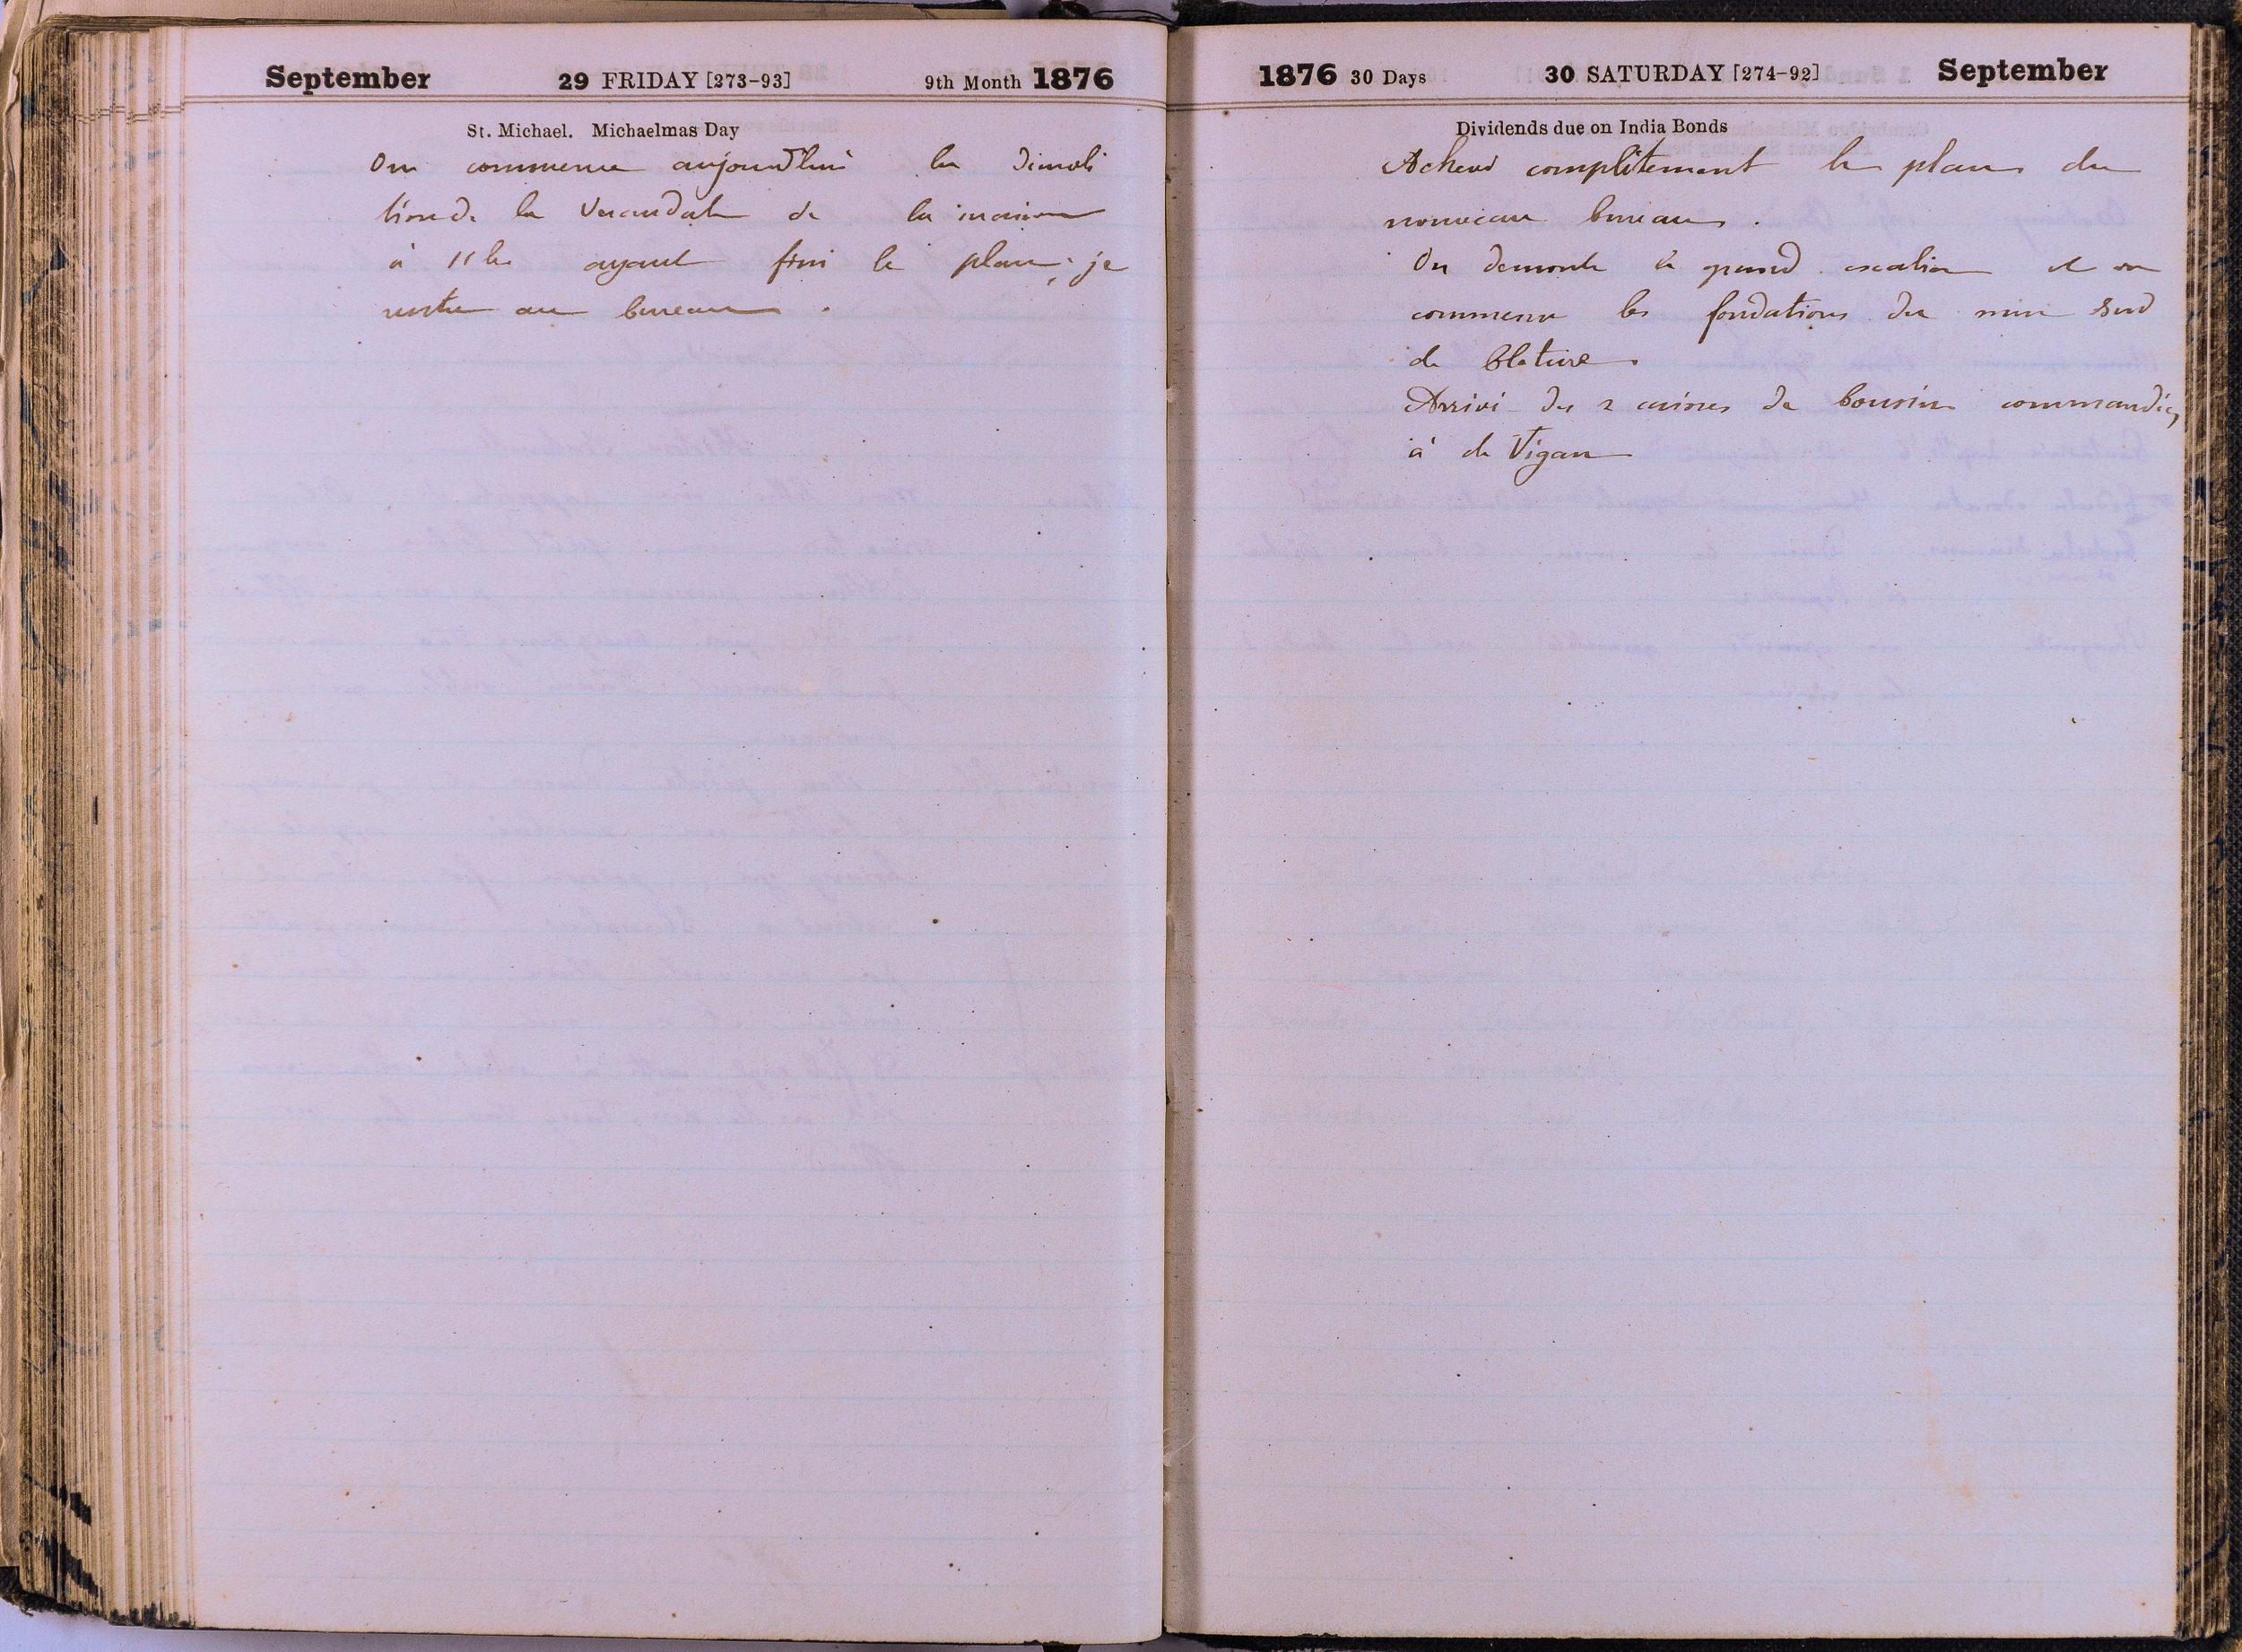 September 29 FRIDAY [273-93] 9th Month 1876
St. Michael. Michaelmas Day
On commence aujourd'hui la démoli
tion de la Verandah de la maison
à 11 h ayant fini le plan; je
reste au bureau.
1876 30 Days 30 SATURDAY [274-92] September
Dividends due on India Bonds
Achevé complètement le plan du
nouveau bureau.
On demonte le grand escalier et on
commence les fondations du mur Sud
de Cloture
Arrivé des 2 caisses de commandées
à de Vigan